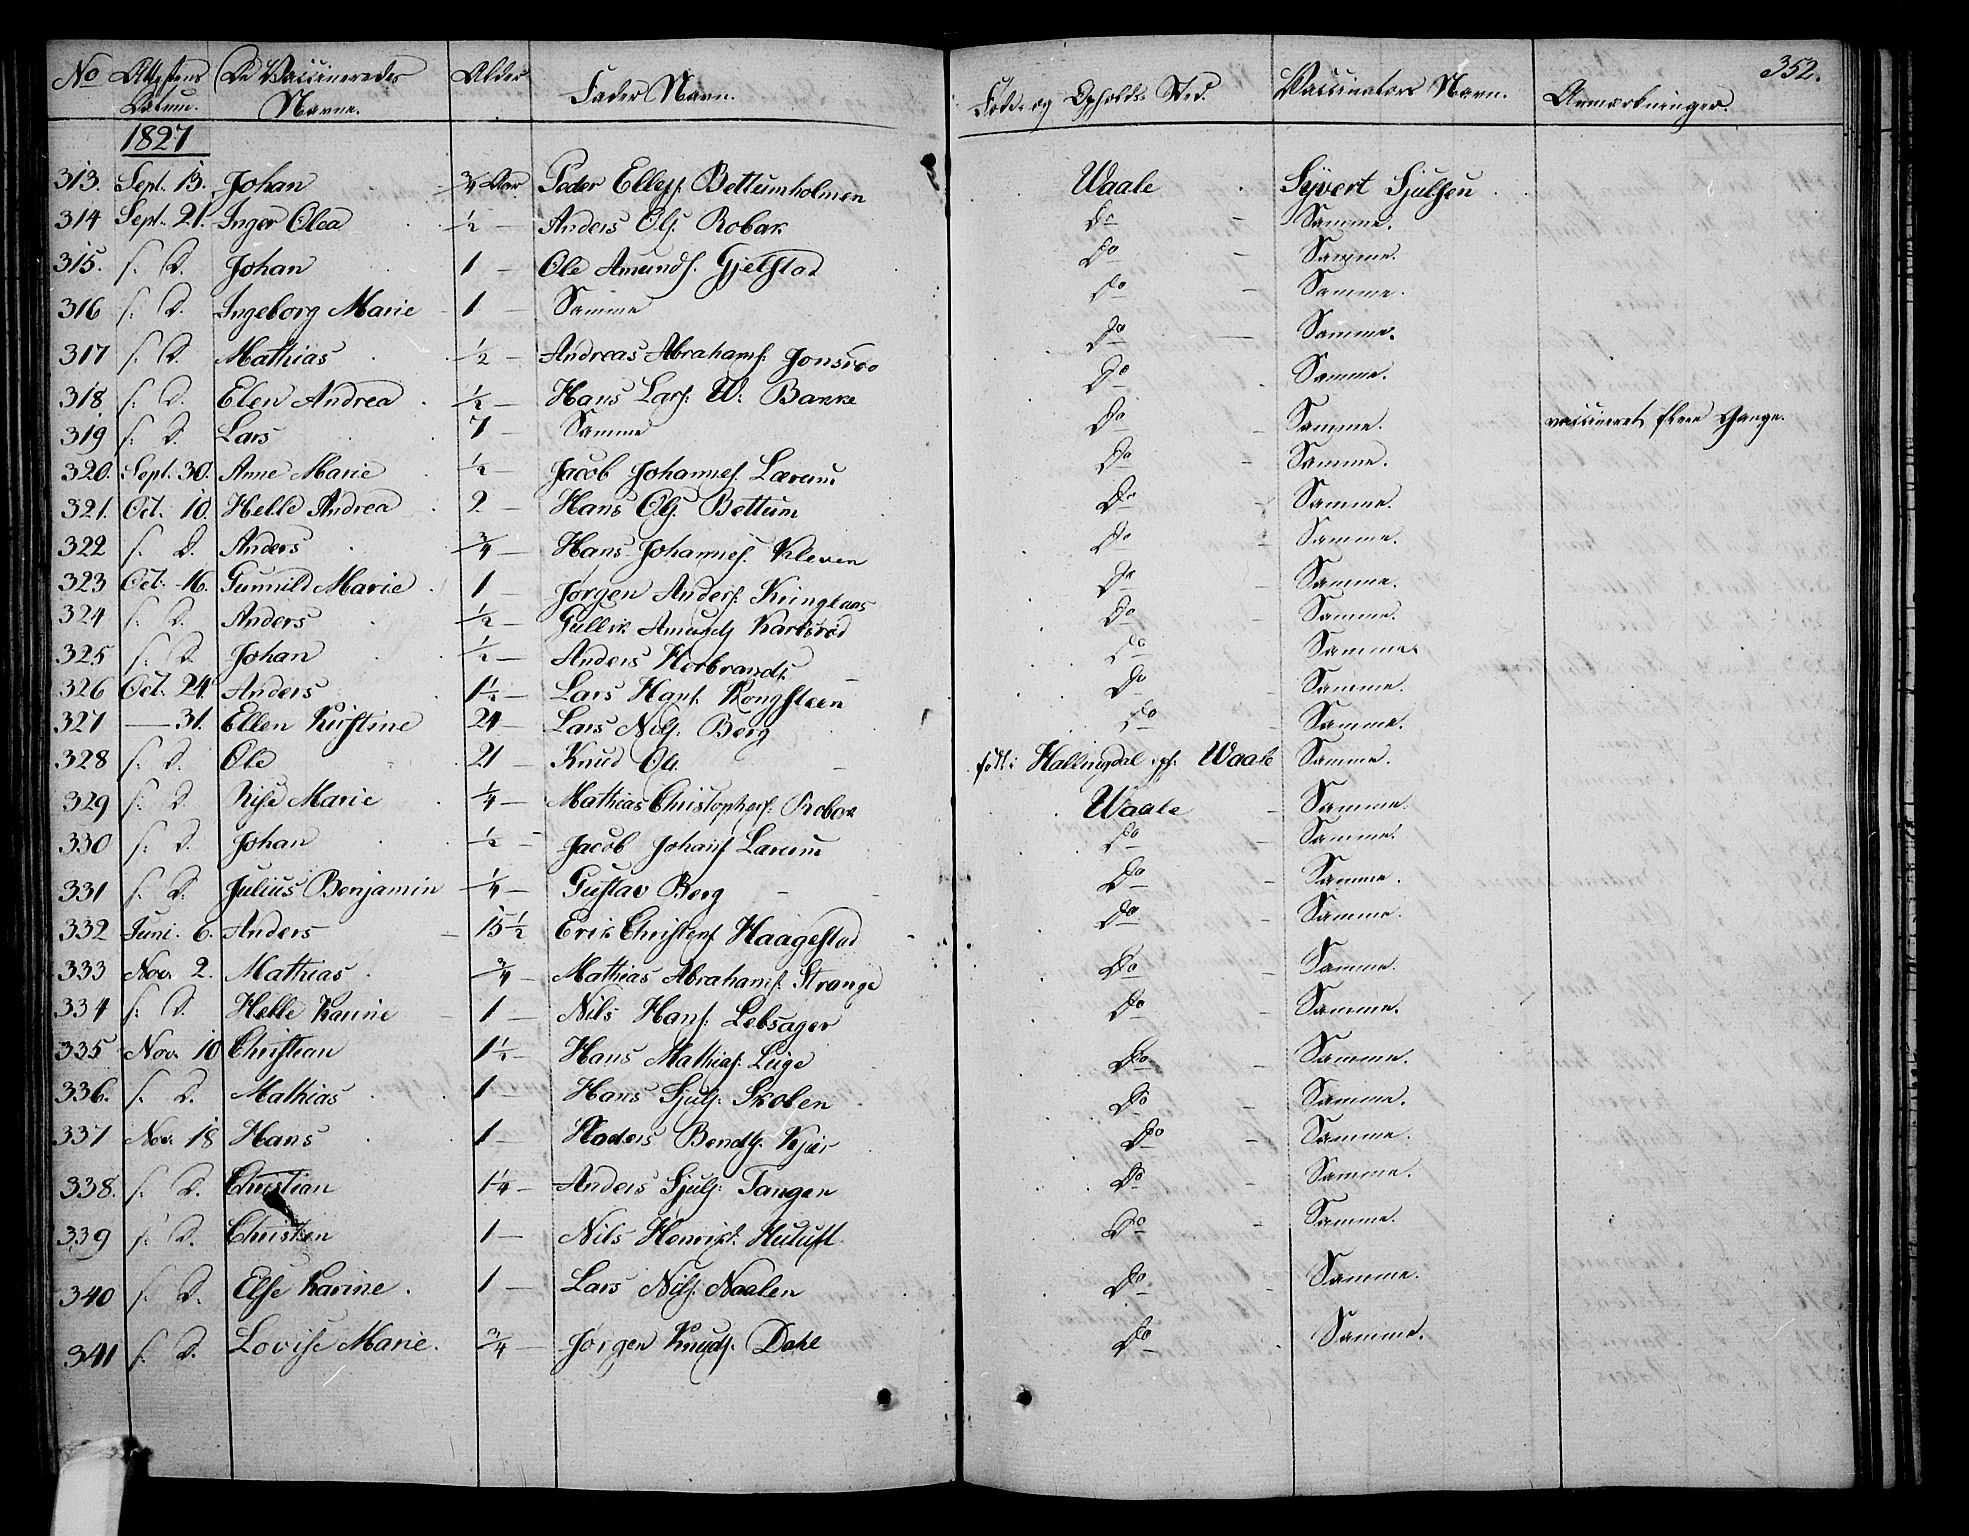 352.
No Attestens Datum. De Vaccineredes Navne. Alder Fader Navn. Føde- og Opholds Sted. Vaccinators Navn. Anmærkninger.
1827
313. Sept. 13. Johan ¾ Aar Peder Ellefs. Bettumholmen Waale Syvert Sjulsen
314 Sept. 21. Inger Olea ½ — Anders Ols. Robak Do Samme.
315. s. D. Johan 1 — Ole Amunds. Gjelstad Do Samme.
316 s. D. Ingeborg Marie 1 — Samme Do Samme.
317 s. D. Mathias ½ — Andreas Abrahams. Do Samme.
318 s. D. Elen Andrea ½ — Hans Lars. W: Bakke Do Samme.
319 s. D. Lars 7 — Samme Do Samme. vaccineret flere Gange.
320. Sept. 30. Anne Marie ½ — Jacob Johannes. Lærum Do Samme.
321. Oct. 10. Helle Andrea 2 — Hans Ols. Bettum Do Samme.
322 s. D. Anders ¾ — Hans Johannes. Kleven Do Samme.
323 Oct. 16. Gunnild Marie 1 — Jørgen Anders. Do Samme.
324 s. D. Anders ½ — Gullik Amunds Do Samme.
325 s. D. Johan ½ — Anders Herbrands. Do Samme.
326 Oct. 24. Anders 1½ — Lars Hans. Kongsteen Do Samme.
327 — 31. Ellen Kirstine 24 — Lars Nils. Berg Do Samme.
328 s. D. Ole 21 — Knud Ols. født i Hallingdal opf. Waale Samme.
329 s. D. Lise Marie ¼ — Mathias Christophers. Robak Waale Samme.
330 s. D. Johan ½ — Jacob Johans Lærum Do Samme.
331 s. D. Julius Benjamin ¼ — Gustav Berg Do Samme.
332 Juni. 6. Anders 15½ Erik Christens Haagestad Do Samme.
333 Nov. 2. Mathias ¾ — Mathias Abrahams. Strange Do Samme.
334 s. D. Helle Karine 1 — Nils Hans. Lebsager Do Samme.
335 Nov. 10 Christian 1½ — Hans Mathias. Leige Do Samme.
336. s. D. Mathias 1 — Hans Sjuls. Skolen Do Samme.
337 Nov. 18 Hans 1 — Bendts. Kjær Do Samme.
338. s. D. Christian 1¼ — Anders Sjuls. Tangen Do Samme.
339 s. D. Christen 1 — Nils Henriks. Do Samme.
340 s. D. Else Karine. 1 — Lars Nils. Naalen Do Samme.
341 s. D. Lovise Marie. ¾ — Jørgen Knuds. Dahl Do Samme.